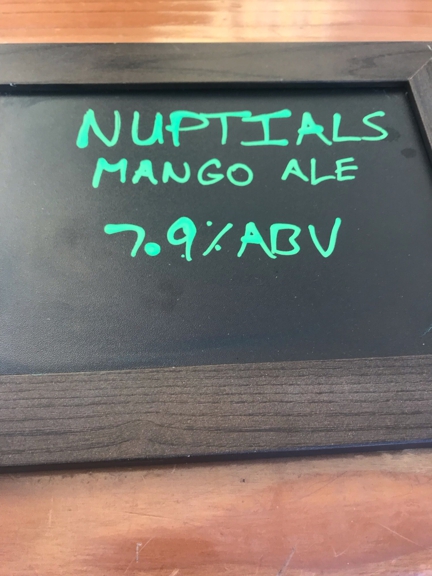 NUPTIALS
MANGO ALE
7.9% ABV